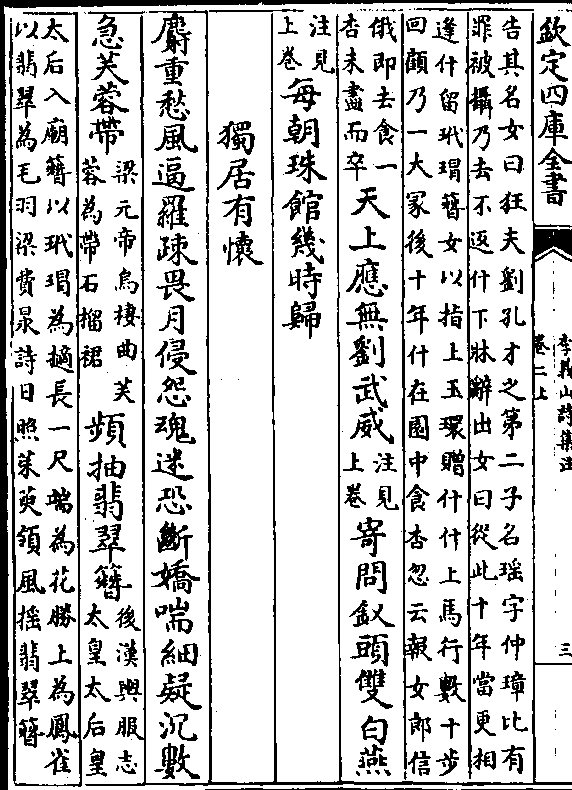 欽定四庫全書
李義山詩集注
卷二上
三
告其名女曰狂夫劉孔才之第二子名瑶字仲璋比有
罪被攝乃去不返什下牀辭出女曰從此十年當更相
逢什留玳瑁簪女以指上玉環贈什什上馬行數十步
回顧乃一大冢後十年什在園中食杏忽云報女郎信
俄即去食一
杏未盡而卒
天上應無劉武威
注見
上卷
寄問釵頭雙白燕
注見
上卷
每朝珠館幾時歸
獨居有懷
麝重愁風逼羅疎畏月侵怨魂迷恐斷嬌喘細疑沉數
急芙蓉帶
梁元帝烏棲曲芙
蓉為帶石榴裙
頻抽翡翠簪
後漢輿服志
太皇太后皇
太后入廟簪以玳瑁為擿長一尺端為花勝上為鳳雀
以翡翠為毛羽梁費昶詩日照茱萸領風摇翡翠簪